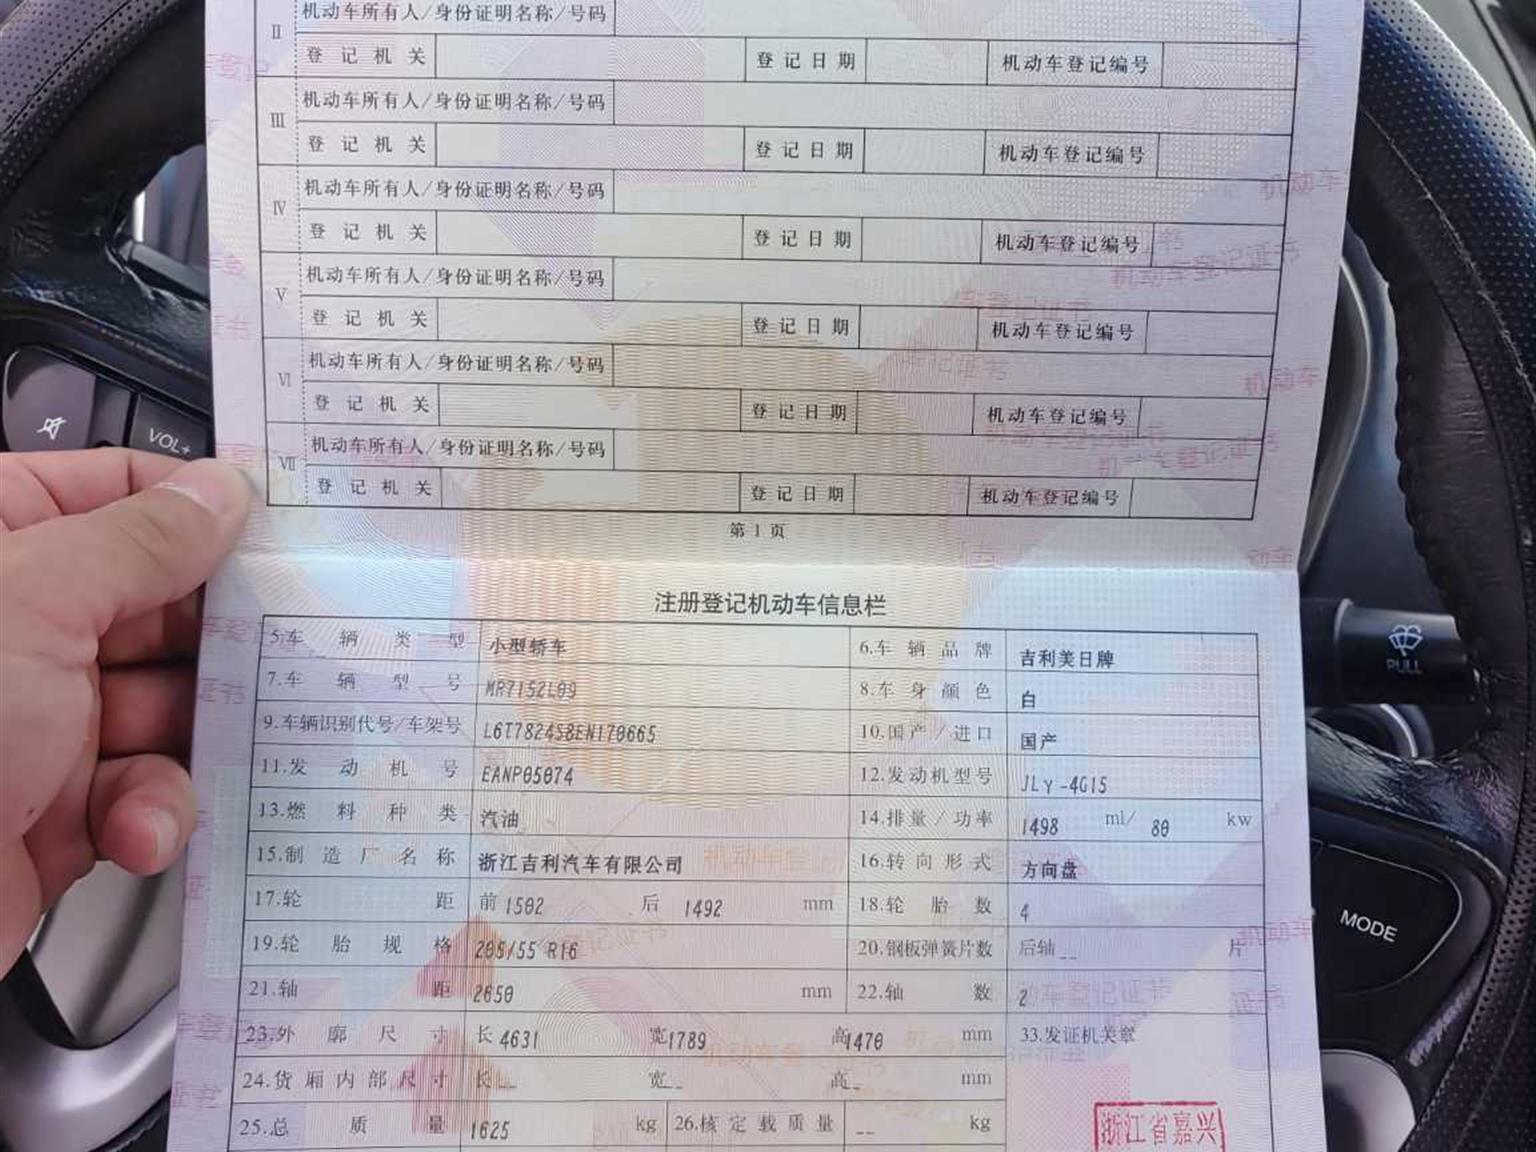 Ⅱ 机动车所有人/身份证明名称/号码
登记机关 登记日期 机动车登记编号
Ⅲ 机动车所有人/身份证明名称/号码
登记机关 登记日期 机动车登记编号
Ⅳ 机动车所有人/身份证明名称/号码
登记机关 登记日期 机动车登记编号
Ⅴ 机动车所有人/身份证明名称/号码
登记机关 登记日期 机动车登记编号
Ⅵ 机动车所有人/身份证明名称/号码
登记机关 登记日期 机动车登记编号
Ⅶ 机动车所有人/身份证明名称/号码
登记机关 登记日期 机动车登记编号
第 1 页
VOL+
注册登记机动车信息栏
5.车辆类型 小型轿车 6.车辆品牌 吉利美日牌
7.车辆型号 MR7152L09 8.车身颜色 白
9.车辆识别代号/车架号 L6T7824S8EN170665 10.国产/进口 国产
11.发动机号 EANP05074 12.发动机型号 JLγ-4G15
13.燃料种类 汽油 14.排量/功率 1498 ml/ 80 kw
15.制造厂名称 浙江吉利汽车有限公司 16.转向形式 方向盘
17.轮距 前 1502 后 1492 mm 18.轮胎数 4
19.轮胎规格 205/55 R16 20.钢板弹簧片数 后轴 -- 片
21.轴距 2650 mm 22.轴数 2
23.外廓尺寸 长 4631 宽 1789 高 1470 mm 33.发证机关章
24.货厢内部尺寸 长 -- 宽 -- 高 -- mm
25.总质量 1625 kg 26.核定载质量 -- kg
浙江省嘉兴
PULL
MODE